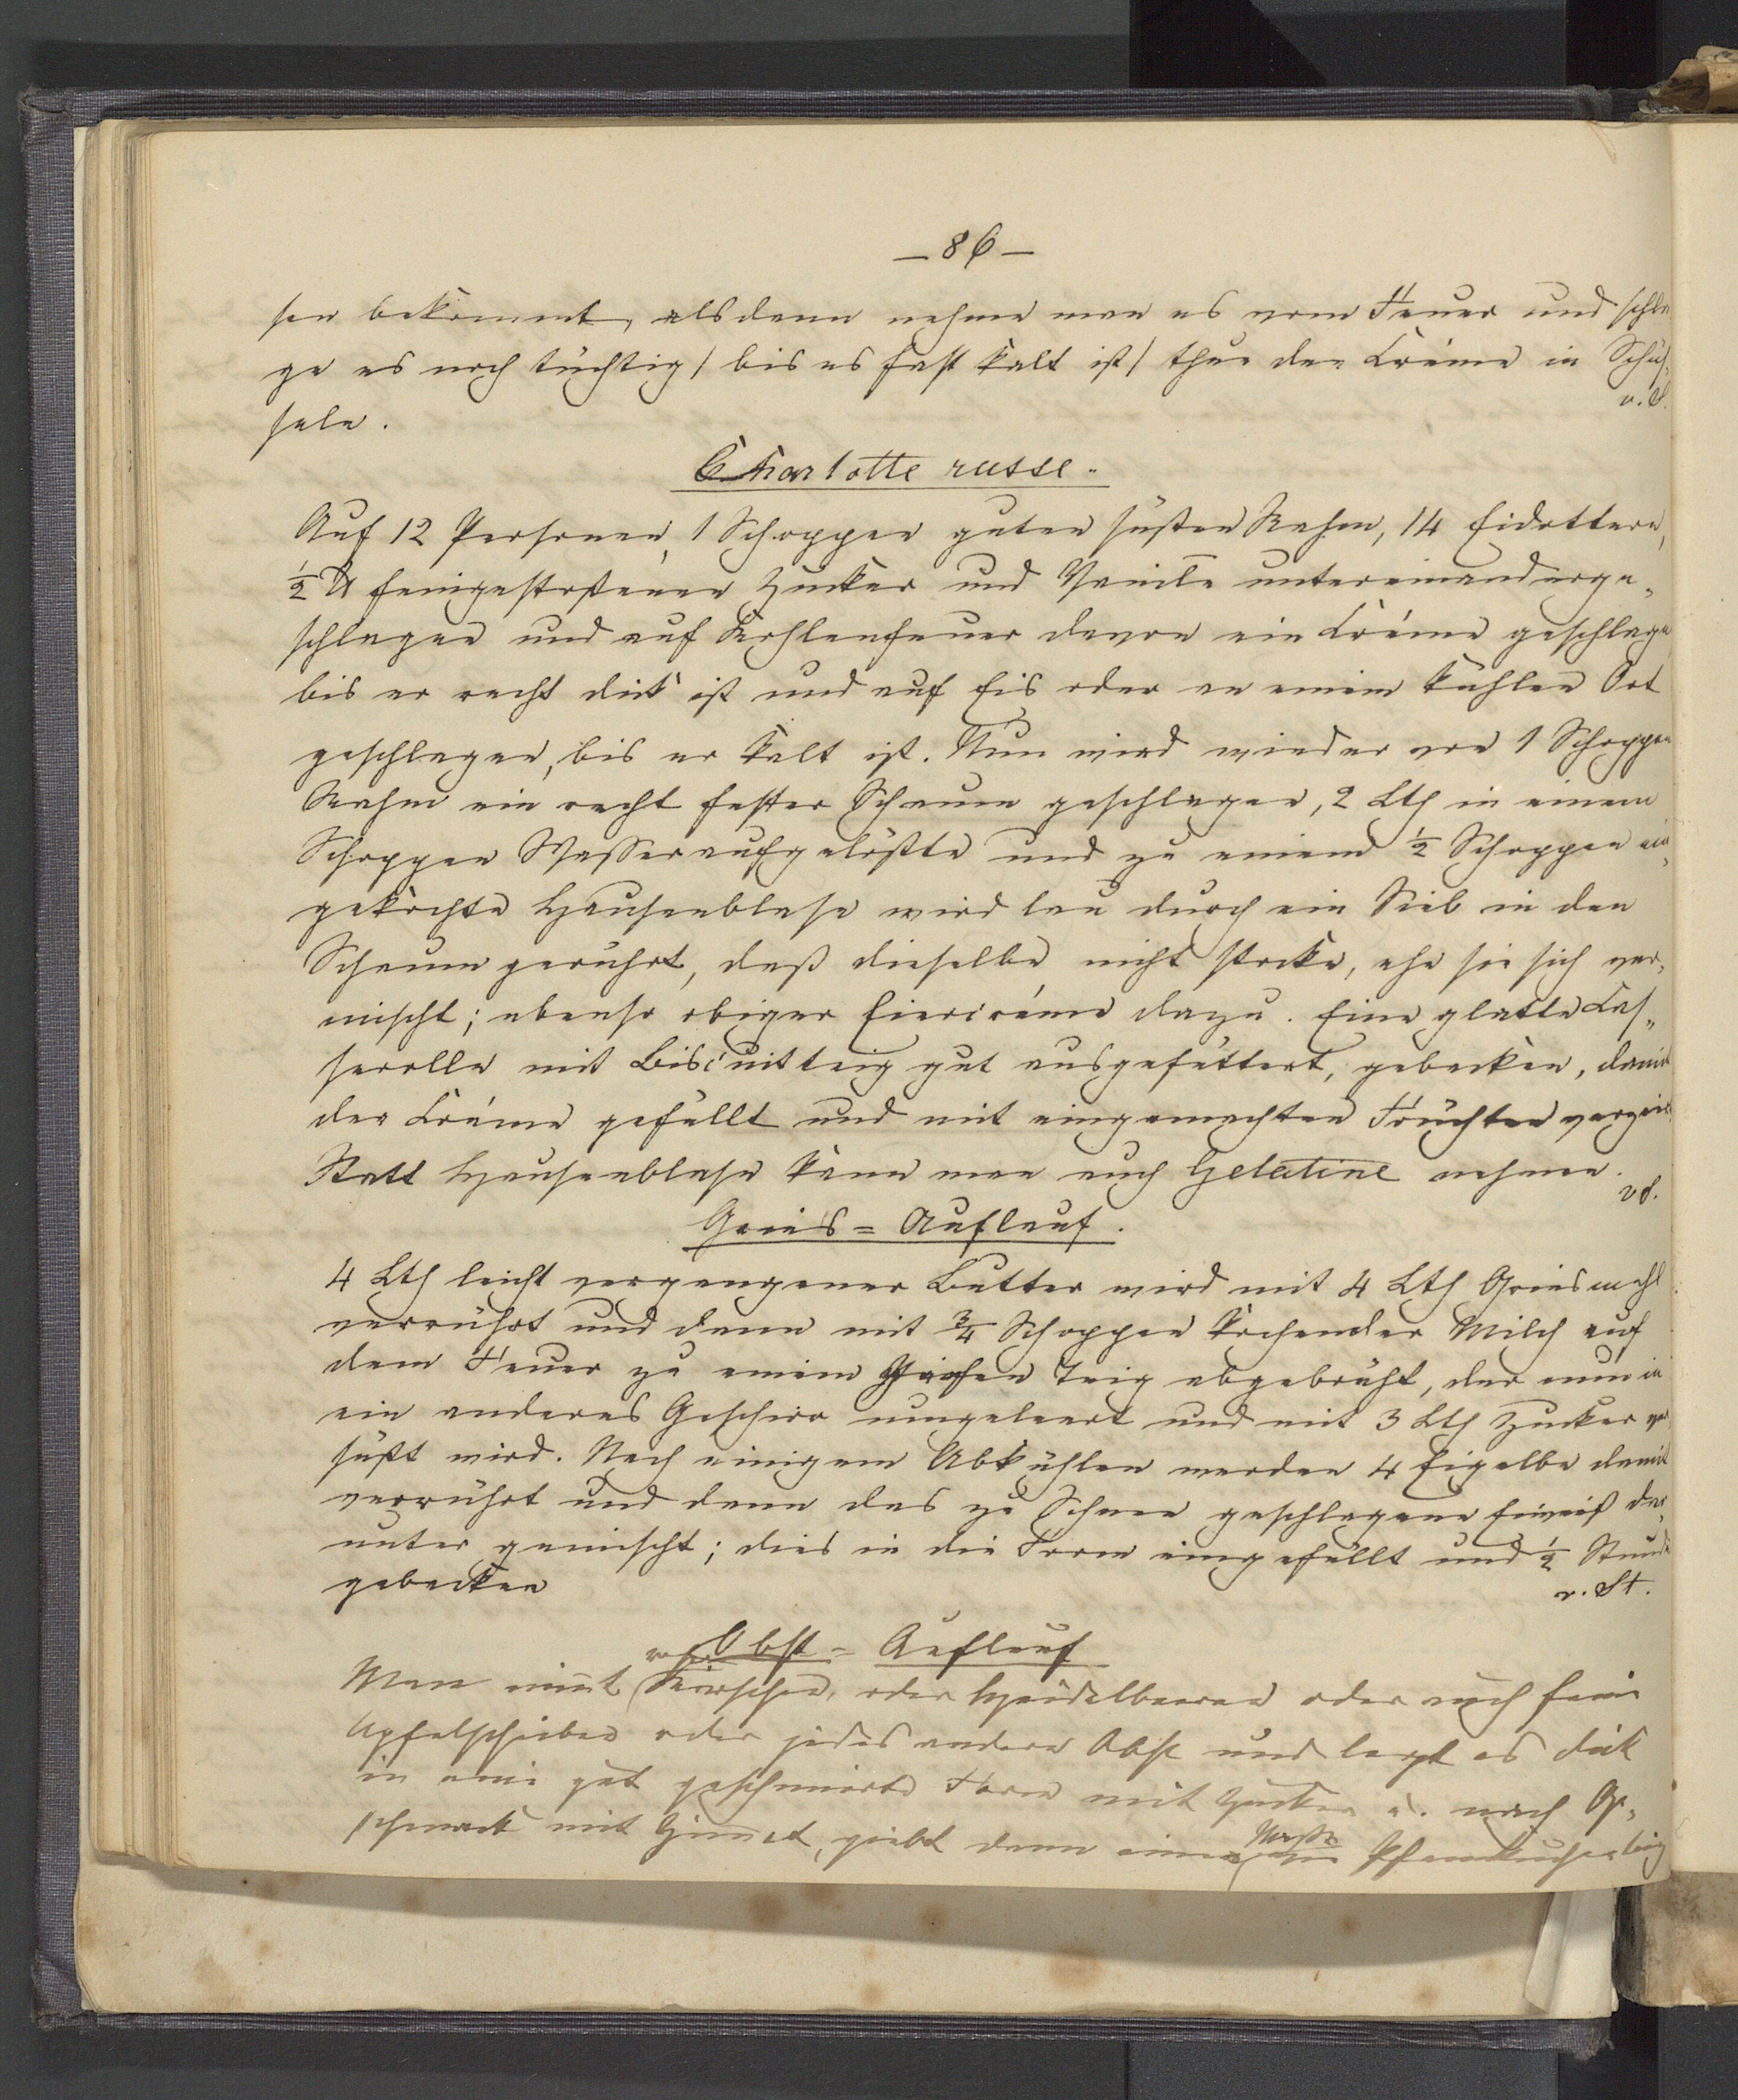 — 86 —
sen bekommt, alsdann nehme man es vom Feuer und schla
ge es noch tüchtig / bis es fast kalt ist / thue den Créme in Schüs-
seln. v. S.
Charlotte russe.
Auf 12 Personen, 1 Schoppen guten süßen Rahm, 14 Eidottern,
½ ℔ feingestoßenen Zucker und Vanille untereinanderge-
schlagen und auf Kohlenfeuer davon ein Créme geschlagen
bis er recht dick ist und auf Eis oder an einem kühlen Ort
geschlagen, bis er kalt ist. Nun wird wieder von 1 Schoppen
Rahm ein recht fester Schaum geschlagen, 2 Lth in einem
Schoppen Wasser aufgelößte und zu einem ½ Schoppen ein-
gekochte Hausenblase wird lau durch ein Sieb in den
Schaum gerührt, daß dieselbe nicht stocke, ehe sie sich ver-
mischt; ebenso obiger Eiercréme dazu. Eine glatte Cas-
serolle mit Biscuitteig gut ausgefüttert, gebacken, dann
der Créme gefüllt und mit eingemachten Früchten verziert
Statt Hausenblase kann man auch Gelatine nehmen.
v S.
Gries-Auflauf.
4 Lth leicht vergangener Butter wird mit 4 Lth Griesmehl
verrührt und dann mit ¾ Schoppen kochender Milch auf
dem Feuer zu einem Teig abgebrüht, der nun in
ein anderes Geschirr umgeleert und mit 3 Lth Zucker ver
süßt wird. Nach einigem Abkühlen werden 4 Eigelbe damit
verrührt und dann das zu Schnee geschlagene Eiweiß dar-
unter gemischt; dies in die Form eingefüllt und ½ Stunde
gebacken v. St.
Obst-Auflauf
Man nimt Kirschen, oder Heidelbeeren oder auch feine
Apfelscheiben oder jedes andere Obst und legt es dick
in eine gut geschmierte Form mit Zucker u. nach Ge-
schmack mit Zimmt, giebt dann einen Pfannkuchenteig